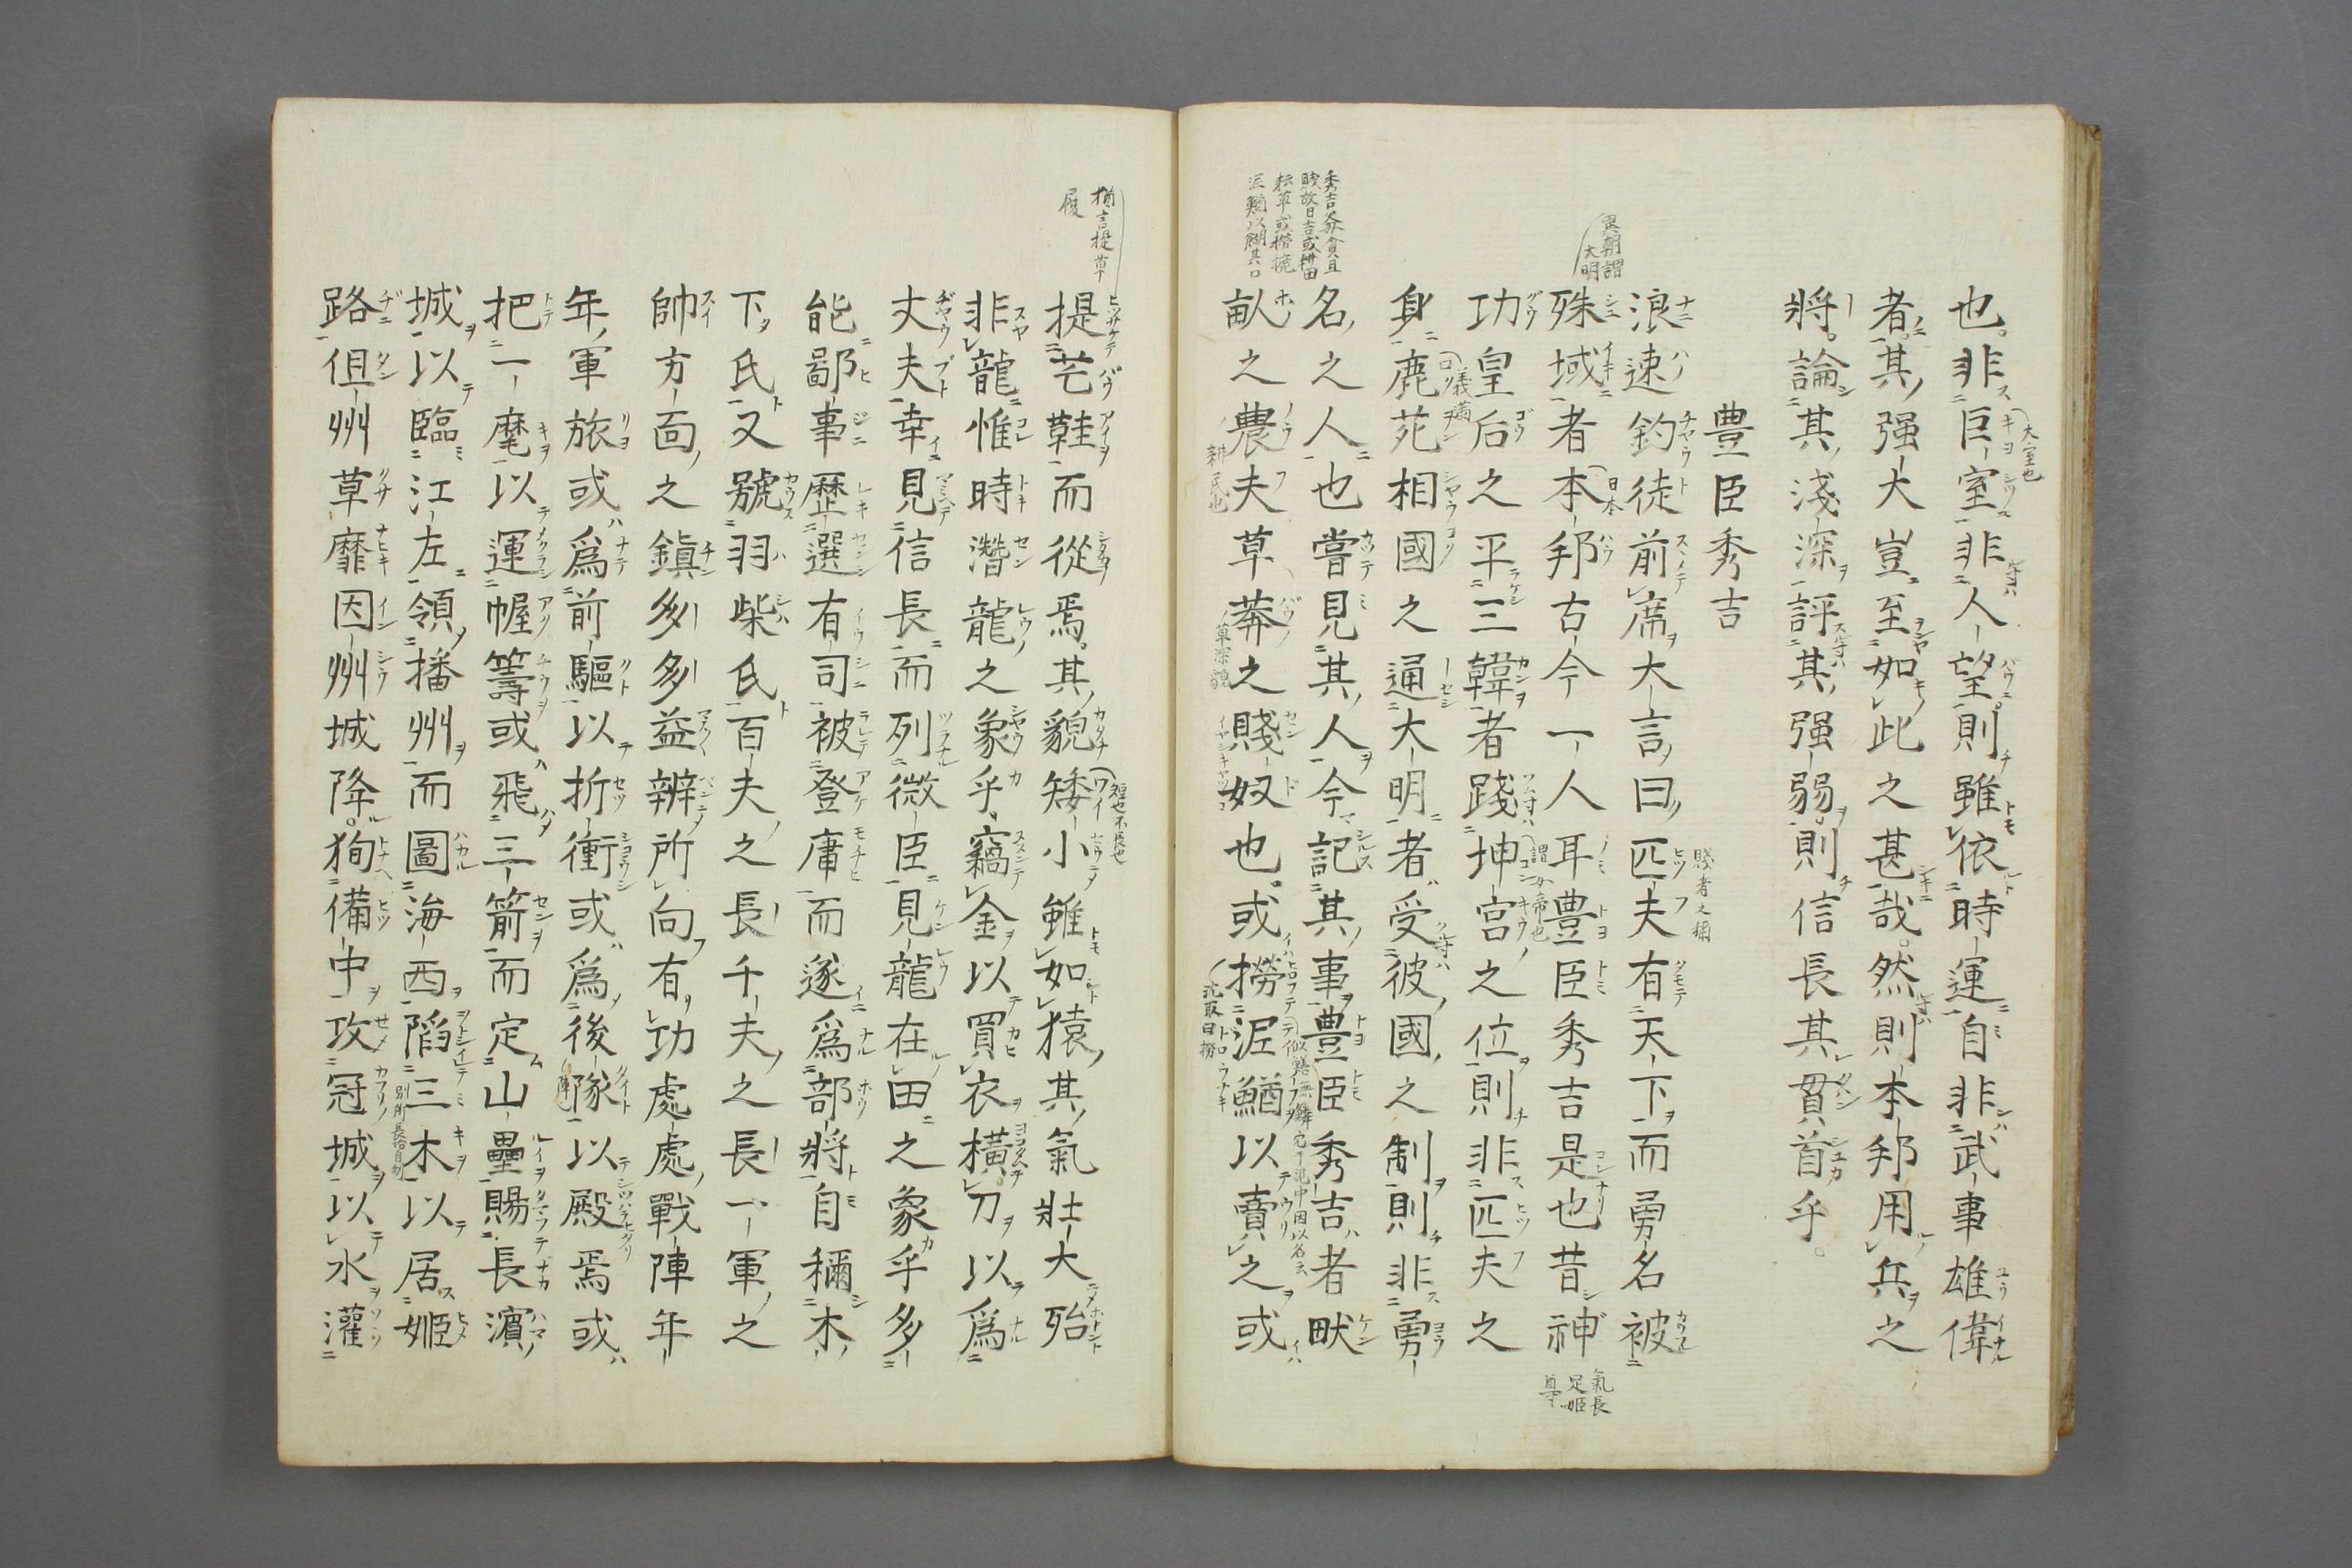 也。非巨室非人望則雖依時運自非武事雄偉
者。其强大豈至如此之甚哉。然則本邦用兵之
將。論其淺深評其强弱。則信長其貫首乎。
豊臣秀吉
浪速釣徒前席大言曰匹夫有天下而勇名被
殊域者本邦古今一人耳豊臣秀吉是也昔神
功皇后之平三韓者踐坤宮之位則非匹夫之
身鹿苑相國之通大明者受彼國之制則非勇
名之人也嘗見其人今記其事豊臣秀吉者畎
畝之農夫草莽之賤奴也。或撈泥鰌以賣之或
提芒鞋而從焉。其貌矮小雖如猿其氣壯大殆
非龍惟時濳龍之象乎竊金以買衣橫刀以爲
丈夫幸見信長而列微臣見龍在田之象乎多
能鄙事歷選有司被登庸而遂爲部將自稱木
下氏又號羽柴氏百夫之長千夫之長一軍之
帥方面之鎭多多益辨所向有功處處戰陣年
年軍旅或爲前驅以折衝或爲後隊以殿焉或
把一麾以運幄籌或飛三箭而定山壘賜長濱
城以臨江左領播州而圖海西陷三木以居姬
路伹州草靡因州城降。狥備中攻冠城以水灌
大室也
賤者之稱
異朝謂
大明
日本
氣長
足姬
尊
謂女帝也
義滿
秀吉家貧且
賤故曰吉或耕田
耘草或撈捴
泥鰌以餬其口
耕民也
草深貌
沈取曰撈
猶言提草
履
短也不長也
別所長治自幼